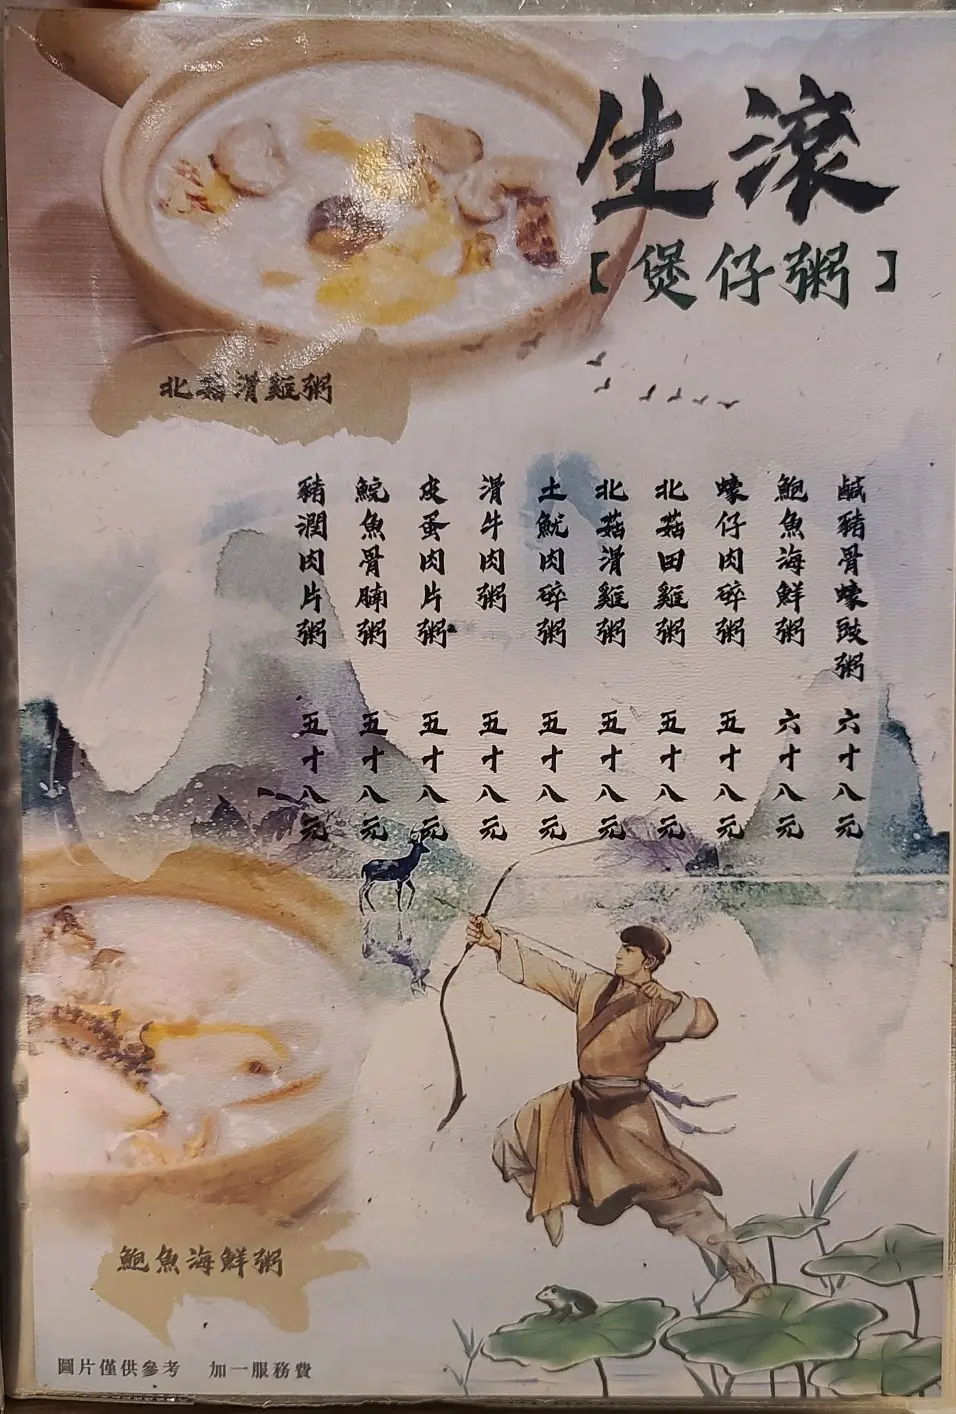 生滾
【煲仔粥】
北菇滑雞粥
鹹豬骨蠔豉粥 六十八元
鮑魚海鮮粥 六十八元
蠔仔肉碎粥 五十八元
北菇田雞粥 五十八元
北菇滑雞粥 五十八元
土魷肉碎粥 五十八元
滑牛肉粥 五十八元
皮蛋肉片粥 五十八元
鯇魚骨腩粥 五十八元
豬潤肉片粥 五十八元
鮑魚海鮮粥
圖片僅供參考 加一服務費